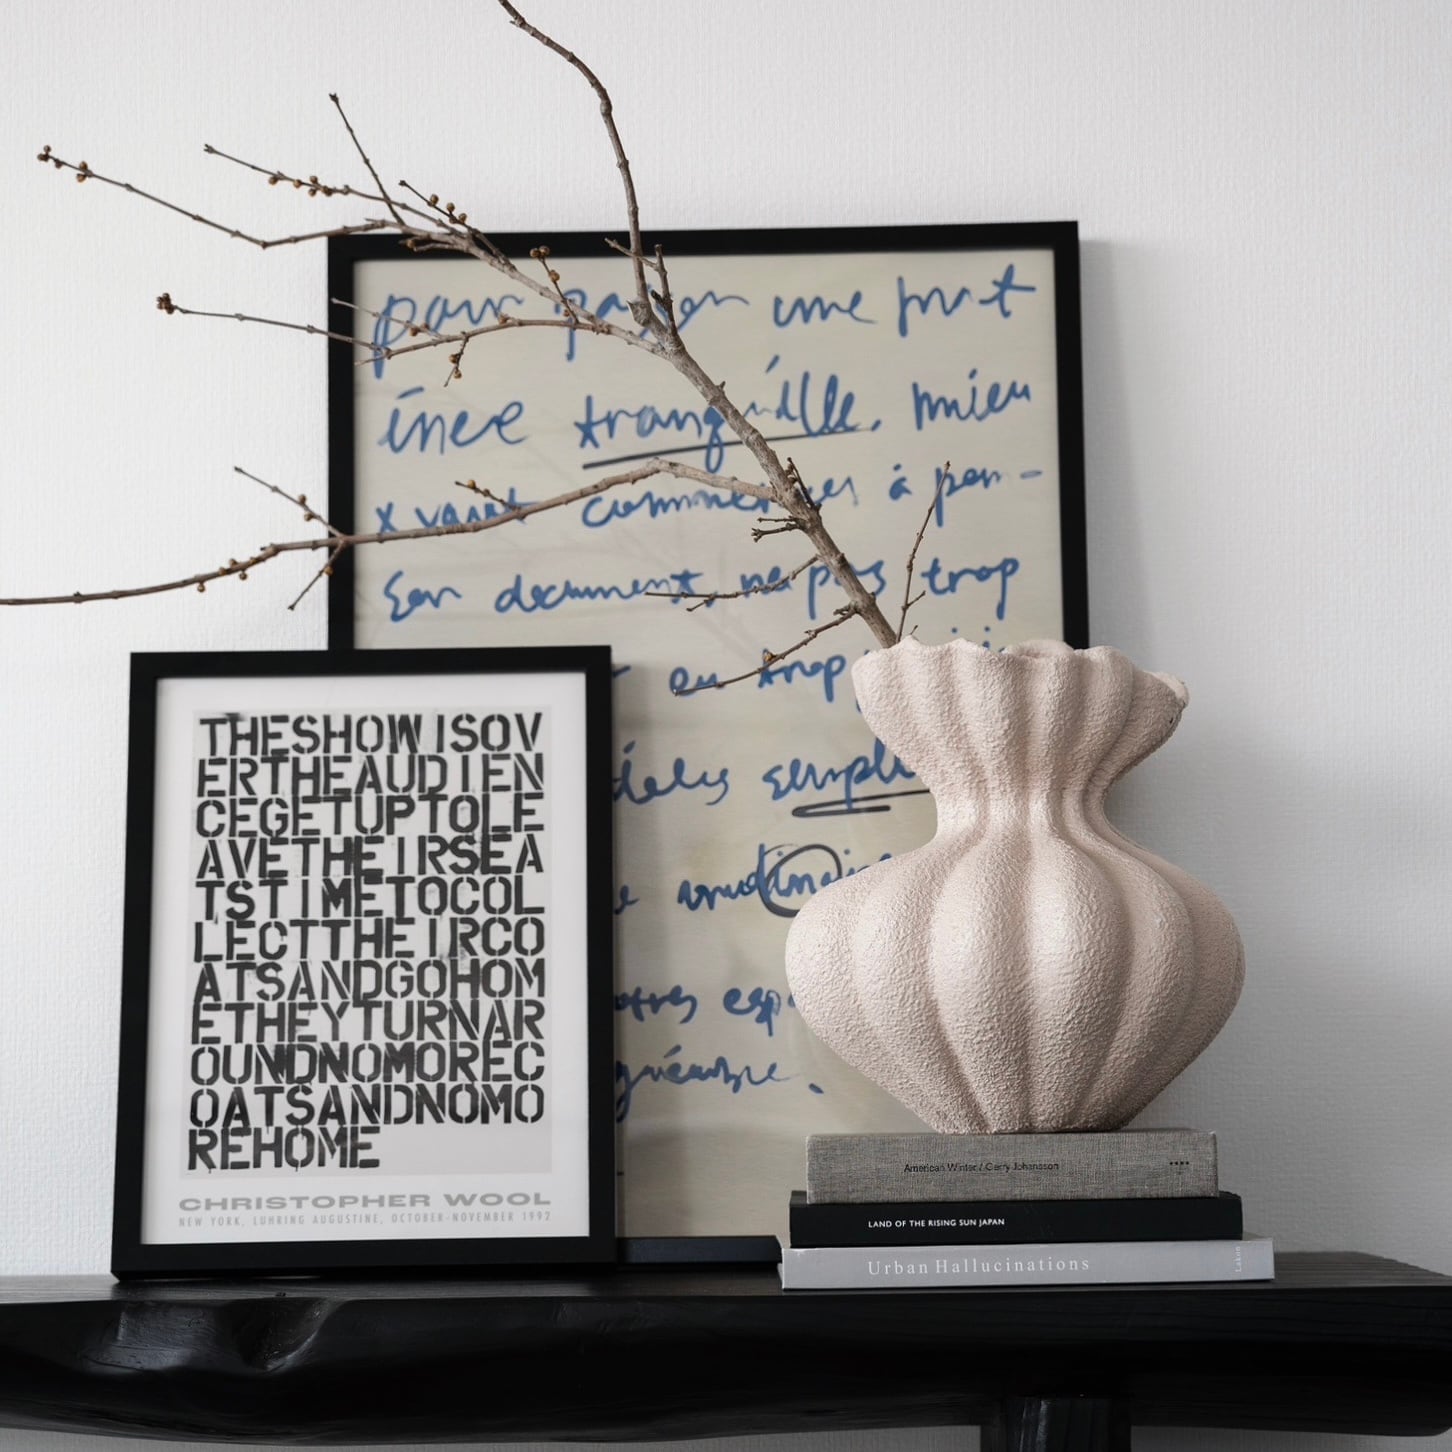 pour payer une prat
inee tranquille, mieu
x vaut commencer à pen-
ser document, ne pas trop
eu trop
simple
THESHOWISOV
ERTHEAUDIEN
CEGETUPTOLE
AVETHEIRSEA
TSTIMETOCOL
LECTTHEIRCO
ATSANDGOHOM
ETHEYTURNAR
OUNDNOMOREC
OATSANDNOMO
REHOME
CHRISTOPHER WOOL
NEW YORK, LUHRING AUGUSTINE, OCTOBER-NOVEMBER 1992
American Winter / Gerry Johansson
LAND OF THE RISING SUN JAPAN
Urban Hallucinations